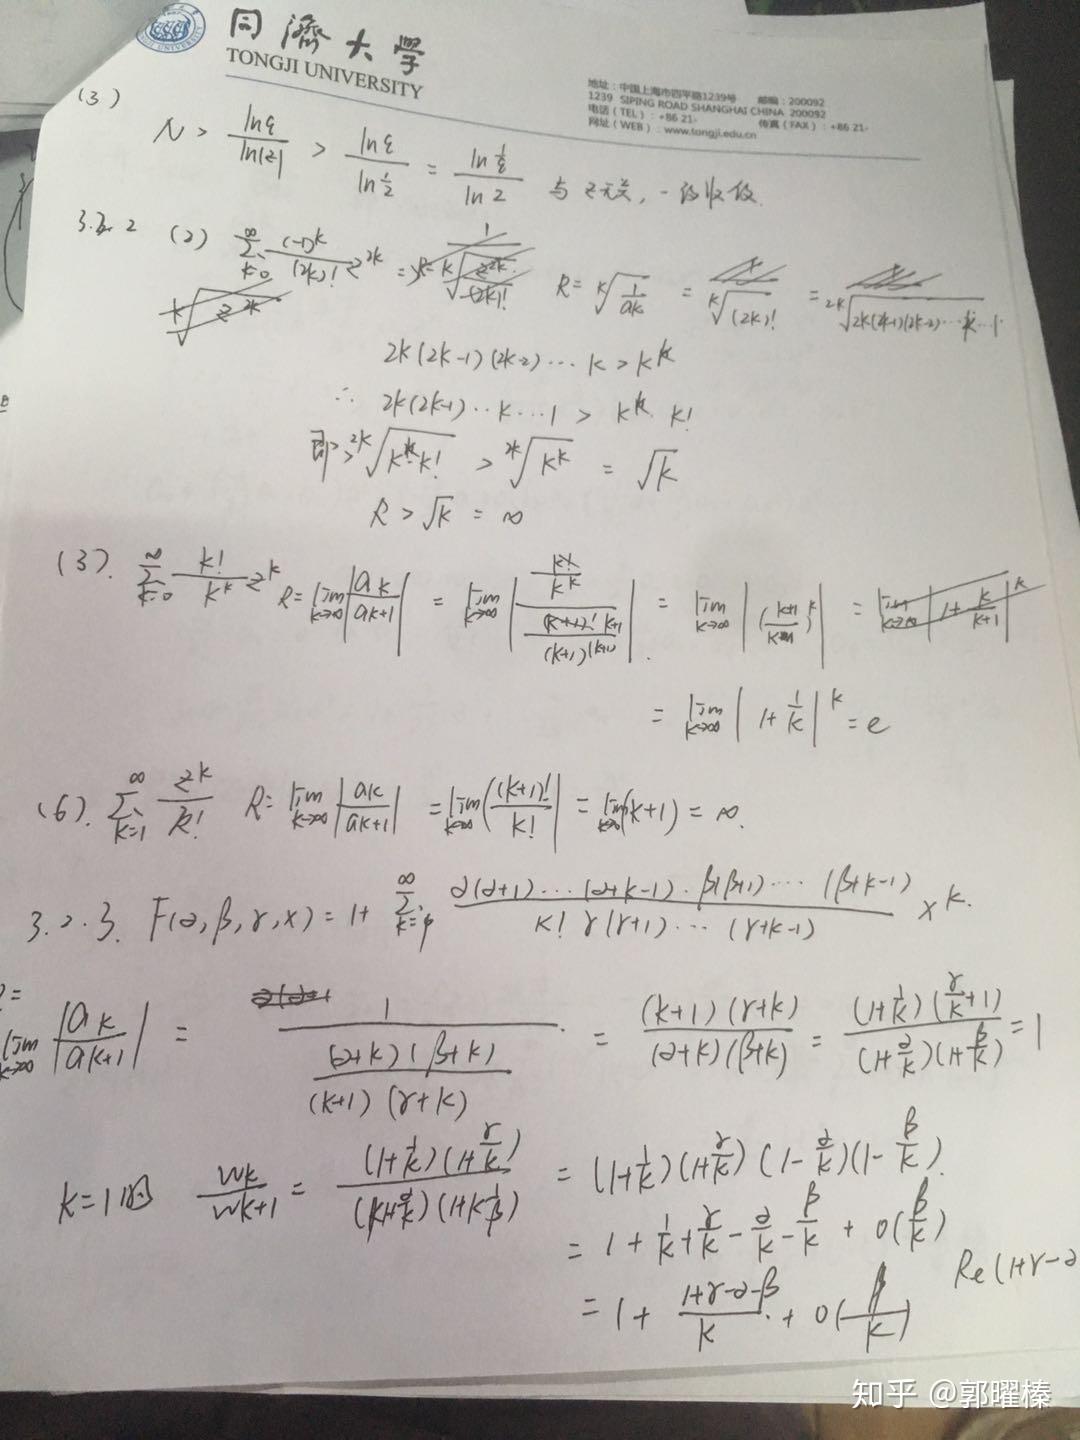 同濟大學
TONGJI UNIVERSITY
地址：中国上海市四平路1239号 邮编：200092
1239 SIPING ROAD SHANGHAI CHINA 200092
电话（TEL）：+86 21- 传真（FAX）：+86 21-
网址（WEB）：www.tongji.edu.cn
(3)
N > lnε/ln|z| > lnε/ln½ = ln(1/ε)/ln2 与z无关，一致收敛.
3.2.2 (2) ∑_{k=0}^∞ (-1)^k/(2k)! z^{2k} R = ᵏ√(1/ak) = ᵏ√(2k)! = ²ᵏ√(2k(2k-1)(2k-2)⋯k⋯1)
2k(2k-1)(2k-2)⋯k > k^k
∴ 2k(2k-1)⋯k⋯1 > k^k·k!
即 > ²ᵏ√(k^k·k!) > ²ᵏ√(k^k) = √k
R > √k = ∞
(3). ∑_{k=0}^∞ k!/k^k z^k R = lim_{k→∞} |ak/ak+1| = lim_{k→∞} |(k!/k^k)/((k+1)!/(k+1)^{(k+1)})| = lim_{k→∞} |((k+1)/k)^k|
= lim_{k→∞} |1+1/k|^k = e
(6). ∑_{k=1}^∞ z^k/k! R = lim_{k→∞} |ak/ak+1| = lim_{k→∞} |(k+1)!/k!| = lim_{k→∞} (k+1) = ∞.
3.2.3. F(α,β,γ,x) = 1+ ∑^∞ α(α+1)⋯(α+k-1)·β(β+1)⋯(β+k-1)/k!γ(γ+1)⋯(γ+k-1) x^k.
lim_{k→∞} |ak/ak+1| = 1/((α+k)(β+k)/(k+1)(γ+k)) = (k+1)(γ+k)/(α+k)(β+k) = (1+1/k)(γ/k+1)/(1+α/k)(1+β/k) = 1
k=1时 wk/wk+1 = (1+1/k)(1+γ/k)/(1+α/k)(1+β/k) = (1+1/k)(1+γ/k)(1-α/k)(1-β/k).
= 1+1/k+γ/k-α/k-β/k+o(β/k)
= 1+ (1+γ-α-β)/k + o(β/k) Re(1+γ-α
知乎 @郭曜榛